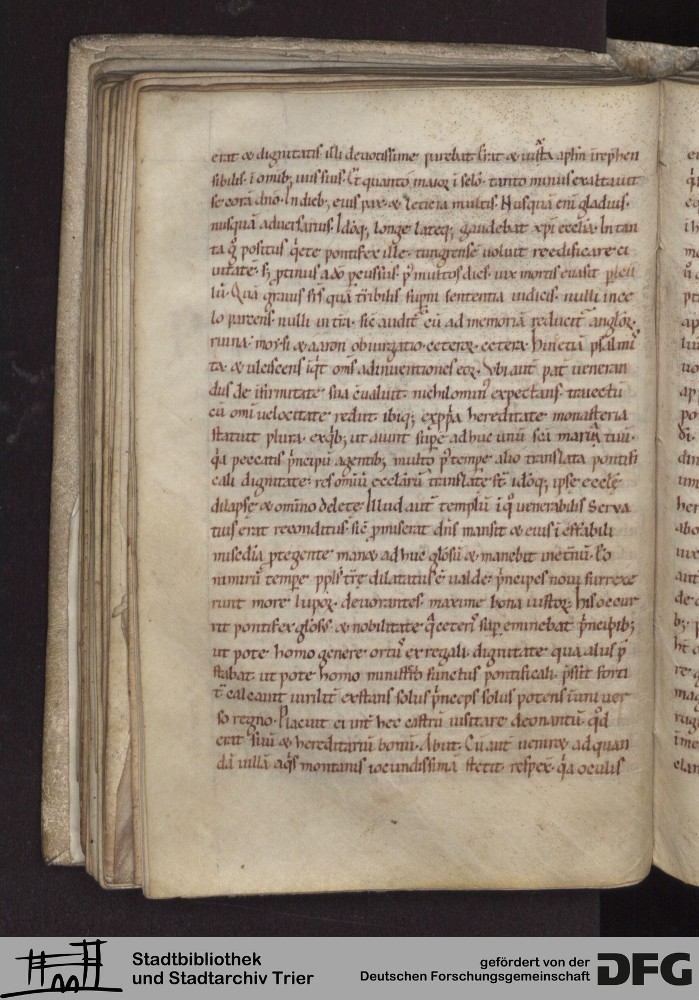 erat & dignitatis illi deuotissime parebat. Erat & iuxta aplm irephen
sibilis i omib; uiis suis. Et quanto maior i sclo. tanto minus exaltauit
se cora dno. In dieb; eius pax & leticia multis. Nusqua eni gladius.
nusqua aduersarius. Idoq; longe lateq; gaudebat xpi ecclia. In tan
ta g positus qete pontifex ille. tungrense uoluit reedificare ci
uitate. s; ptinus a do pcussus. p multos dies. uix mortis euasit picu
lu. Qua grauis frs qua tribilis supni sententia iudicis. nulli in ce
lo parcens. nulli in tra. sic audit eu ad memoria reducit anglor.
ruina. moysi & aaron obiurgatio. cetera. Hinc etia psalmi
ta. & ulciscens iqt oms adinuentiones eor. Vbi aut pat ueneran
dus de ifirmitate sua eualuit. nichilomin expectans. traiectu
cu omi uelocitate rediit. ibiq; exppa hereditate monasteria
statuit plura. ex qb; ut aiunt supe adhuc unu sci
qa peccatis pncipu agentib; multo p tempe alio translata pontifi
cali dignitate. res omiu ecclaru translate st. idoq; ipse eccle
dilapse & omino delete. Illud aut templu i q uenerabilis Serua
tius erat reconditus. sic pmiserat dns mansit & eius i effabili
misedia ptegente man& adhuc glosu & manebit in etnu. Eo
nimiru tempe ppls tre dilatatus e ualde. pncipes noui surrexe
runt more lupor. deuorantes maxime bona iustor. his occur
rit pontifex gloss. & nobilitate q ceteri sup eminebat pncipib;
ut pote homo genere ortu ex regali. dignitate qua aliis p
stabat. ut pote homo ministio functus pontificali. psit forti
t calcauit uirilit exstans solus pnceps solus potens i uniuer
so regno. Placuit ei int hec castru uisitare deonantu. qd
erat suu & hereditariu bonu. Abiit. Cu aut uenir& ad quan
da uilla aqs montanis iocundissima stetit. respex. qa oculis
Stadtbibliothek
und Stadtarchiv Trier
gefördert von der
Deutschen Forschungsgemeinschaft
DFG